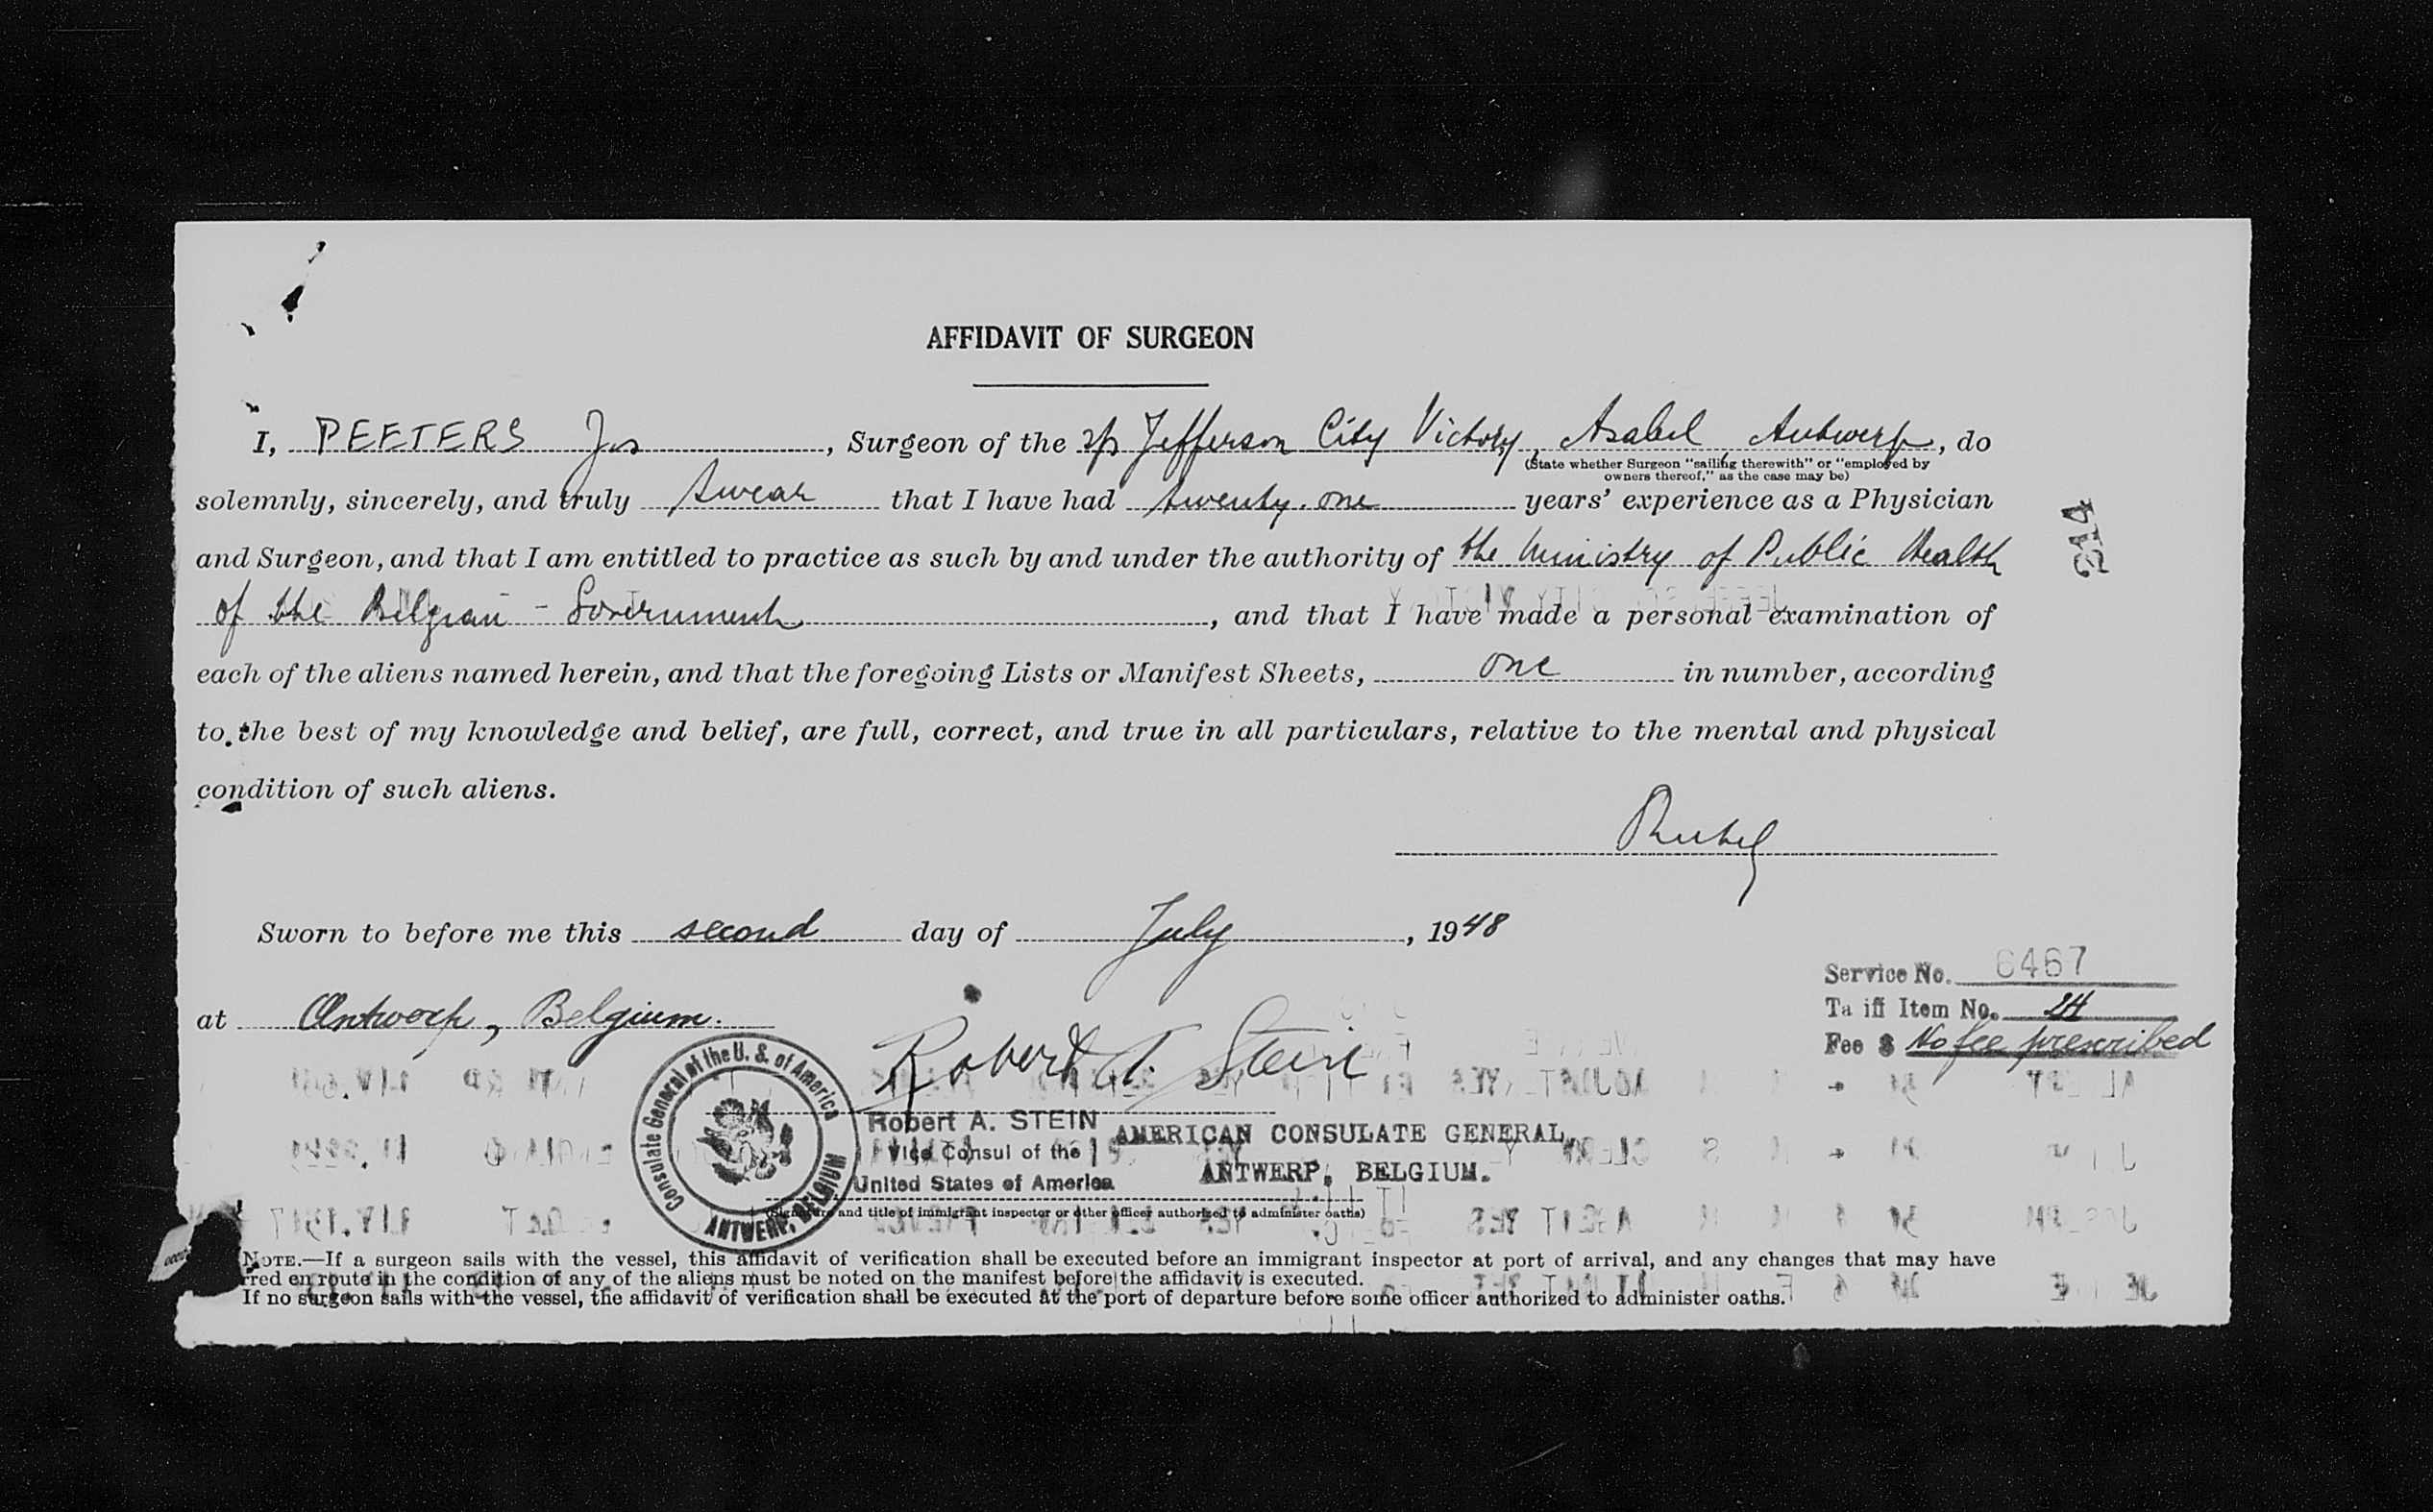 AFFIDAVIT OF SURGEON
I, PEETERS Jos, Surgeon of the s/s Jefferson City Victory, Antwerp, do
(State whether Surgeon "sailing therewith" or "employed by
owners thereof," as the case may be)
solemnly, sincerely, and truly swear that I have had twenty-one years' experience as a Physician
and Surgeon, and that I am entitled to practice as such by and under the authority of the Ministry of Public Health
of the Belgian - Government, and that I have made a personal examination of
each of the aliens named herein, and that the foregoing Lists or Manifest Sheets, one in number, according
to the best of my knowledge and belief, are full, correct, and true in all particulars, relative to the mental and physical
condition of such aliens.
214
Sworn to before me this second day of July, 1948
at Antwerp, Belgium.
Service No. 6467
Ta iff Item No. 24
Fee $ No fee prescribed
Robert A. Stein
Consulate General of the U. S. of America
ANTWERP, BELGIUM
Robert A. STEIN
Vice Consul of the
United States of America
AMERICAN CONSULATE GENERAL,
ANTWERP, BELGIUM.
(Signature and title of immigrant inspector or other officer authorized to administer oaths)
NOTE.—If a surgeon sails with the vessel, this affidavit of verification shall be executed before an immigrant inspector at port of arrival, and any changes that may have
rred en route in the condition of any of the aliens must be noted on the manifest before the affidavit is executed.
If no surgeon sails with the vessel, the affidavit of verification shall be executed at the port of departure before some officer authorized to administer oaths.